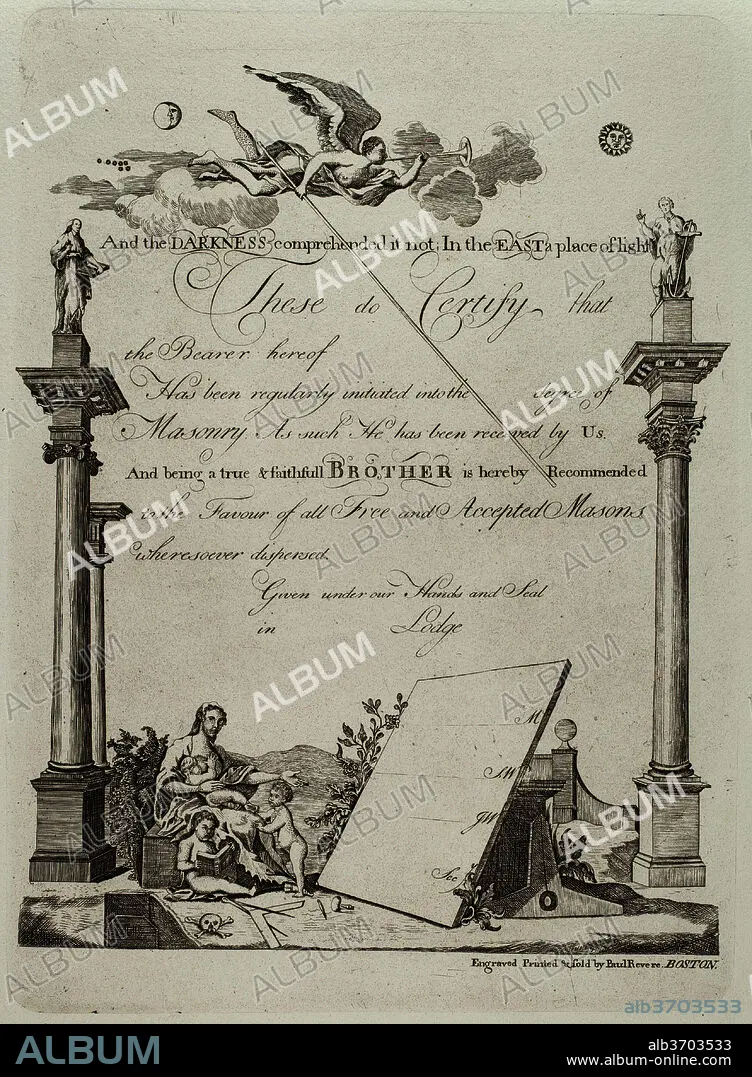 And the DARKNESS comprehended it not; In the EAST a place of light
These do Certify that
the Bearer hereof
Has been regularly initiated into the degree of
Masonry. As such He has been received by Us.
And being a true & faithfull BROTHER is hereby Recommended
to the Favour of all Free and Accepted Masons
wheresoever dispersed.
Given under our Hands and Seal
in Lodge
M
S.W
J.W
Sec
Engraved Printed & sold by Paul Revere. BOSTON.
alb3703533
ALBUM
alb3703533
www.album-online.com